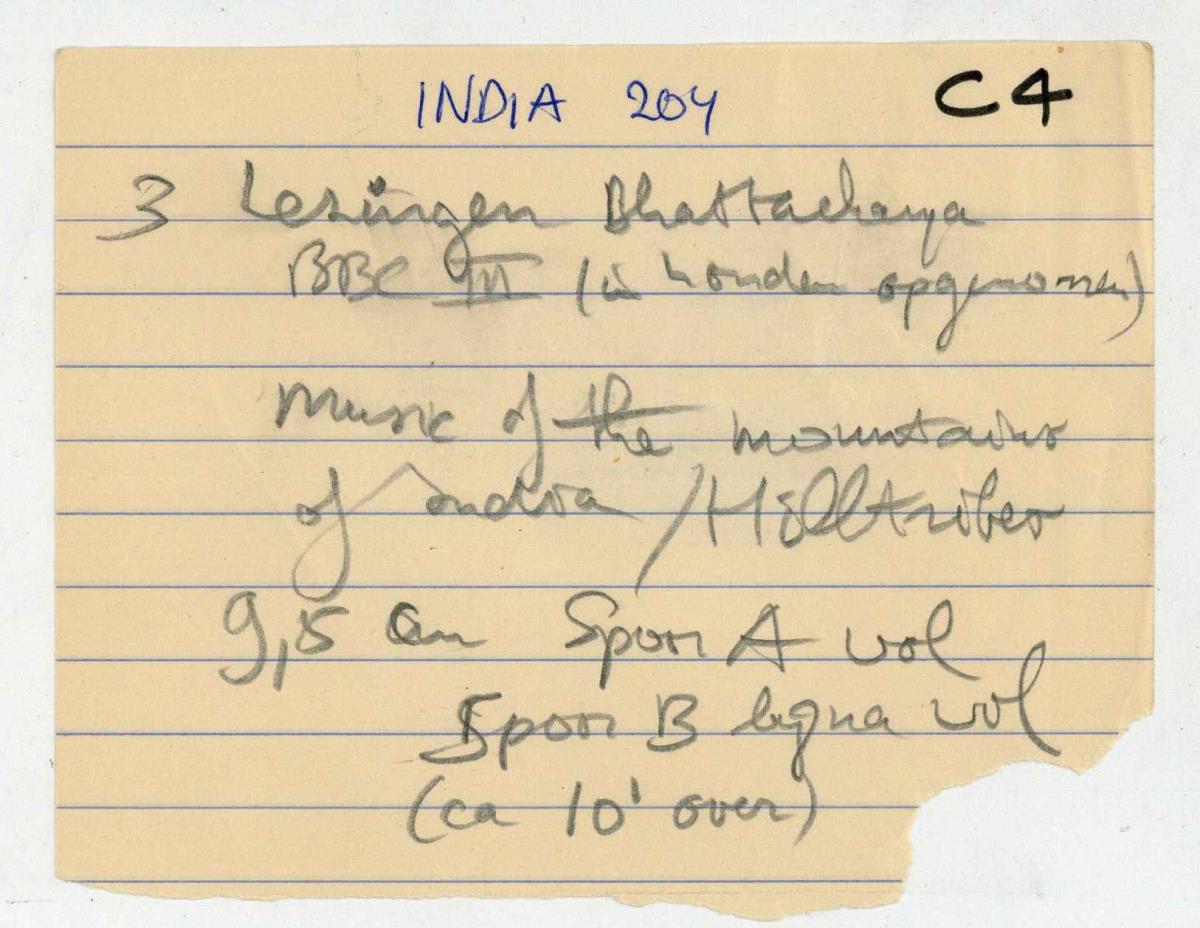 INDIA 204 C4
3 Lezingen Bhattacharya
BBC III (in Londen opgenomen)
Music of the mountains
of India / Hilltribes
9,5 cm Spoor A vol
Spoor B bijna vol
(ca 10' over)